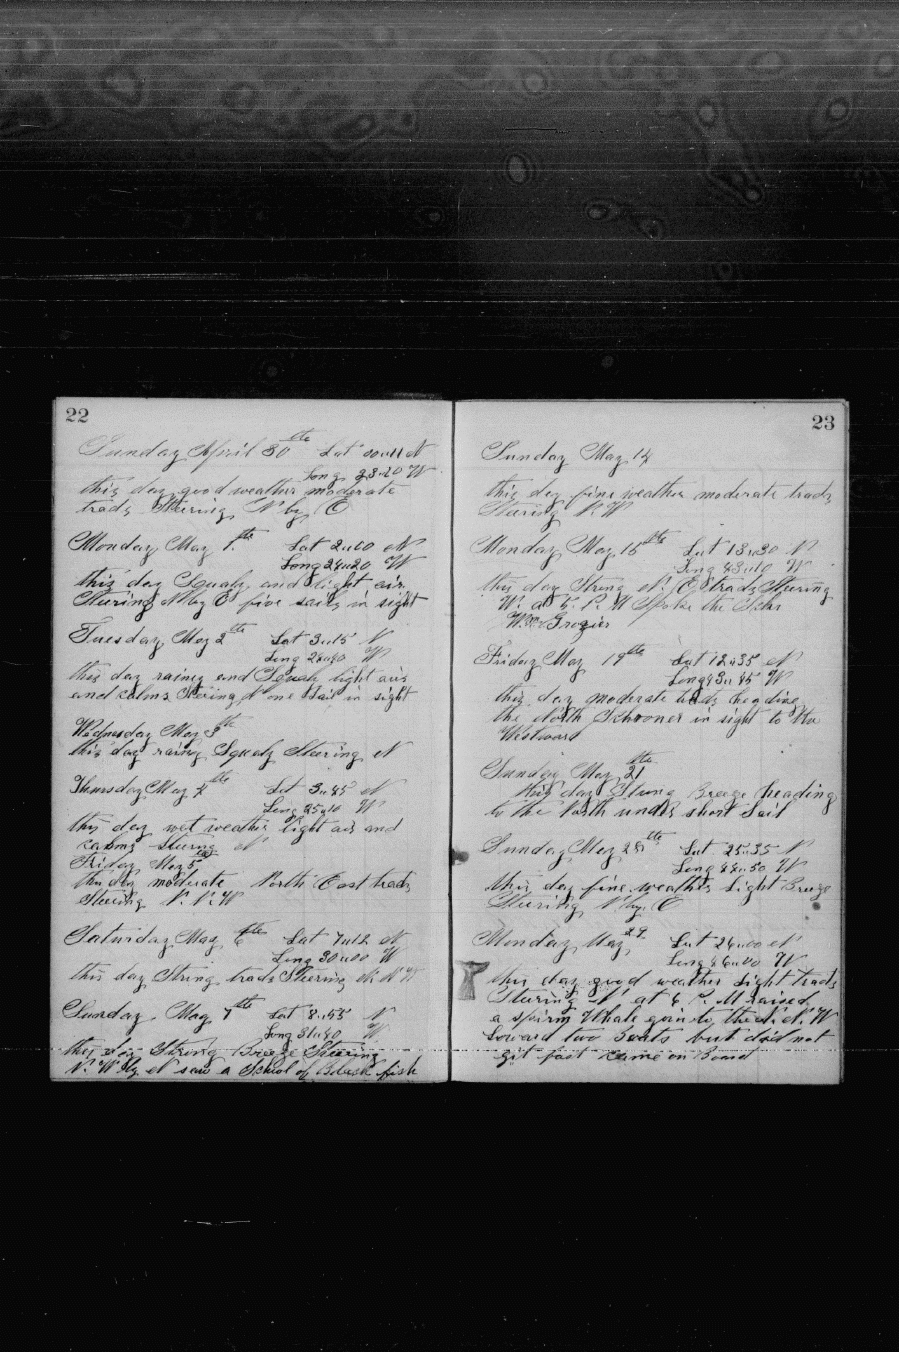 22
Sunday April 30th Lat 00"11 N
Long 23"20 W
this day good weather moderate
trads Steering N by E
Monday May 1th Lat 2"00 N
Long 24"20 W
this day Squaly and light air
Steering N by E five sails in sight
Tuesday May 2th Lat 3"15 N
Long 24"40 W
this day rainy and Squaly light airs
and calms Stering N one Sail in sight
Wednesday May 3th
this day rainy Squaly Steering N
Thursday May 4th Lat 3"45 N
Long 25"10 W
this day wet weather light air and
calms stering N
Friday May 5th
this day moderate North East trads
Steering N.N.W
Saturday May 6th Lat 7"12 N
Long 30"00 W
this day Strong trads Steering N.N.W
Sunday May 7th Lat 8"55 N
Long 31"40 W
this day Strong Breeze Steering
N.W by N saw a School of Black fish
23
Sunday May 14
this day fine weather moderate trads
Steering N.W
Monday May 15th Lat 13"30 N
Long 43"10 W
this day Strong N.E trads Steering
W. at 5. P. M Spoke the Schr
Wm Grozier
Friday May 19th Lat 12"35 N
Long 43"45 W
this day moderate trads heading
the North Schooner in sight to the
Westward
Sunday May 21th
this day Strong Breeze heading
to the North under short Sail
Sunday May 28th Lat 25"35 N
Long 44"50 W
this day fine weather Light Breeze
Steering N by E
Monday May 29 Lat 26"00 N
Long 46"00 W
this day good weather Light trads
Steering N at 4 P.M raised
a spirm Whale goin to the N.W
Loward two Boats but did not
git fast came on Board